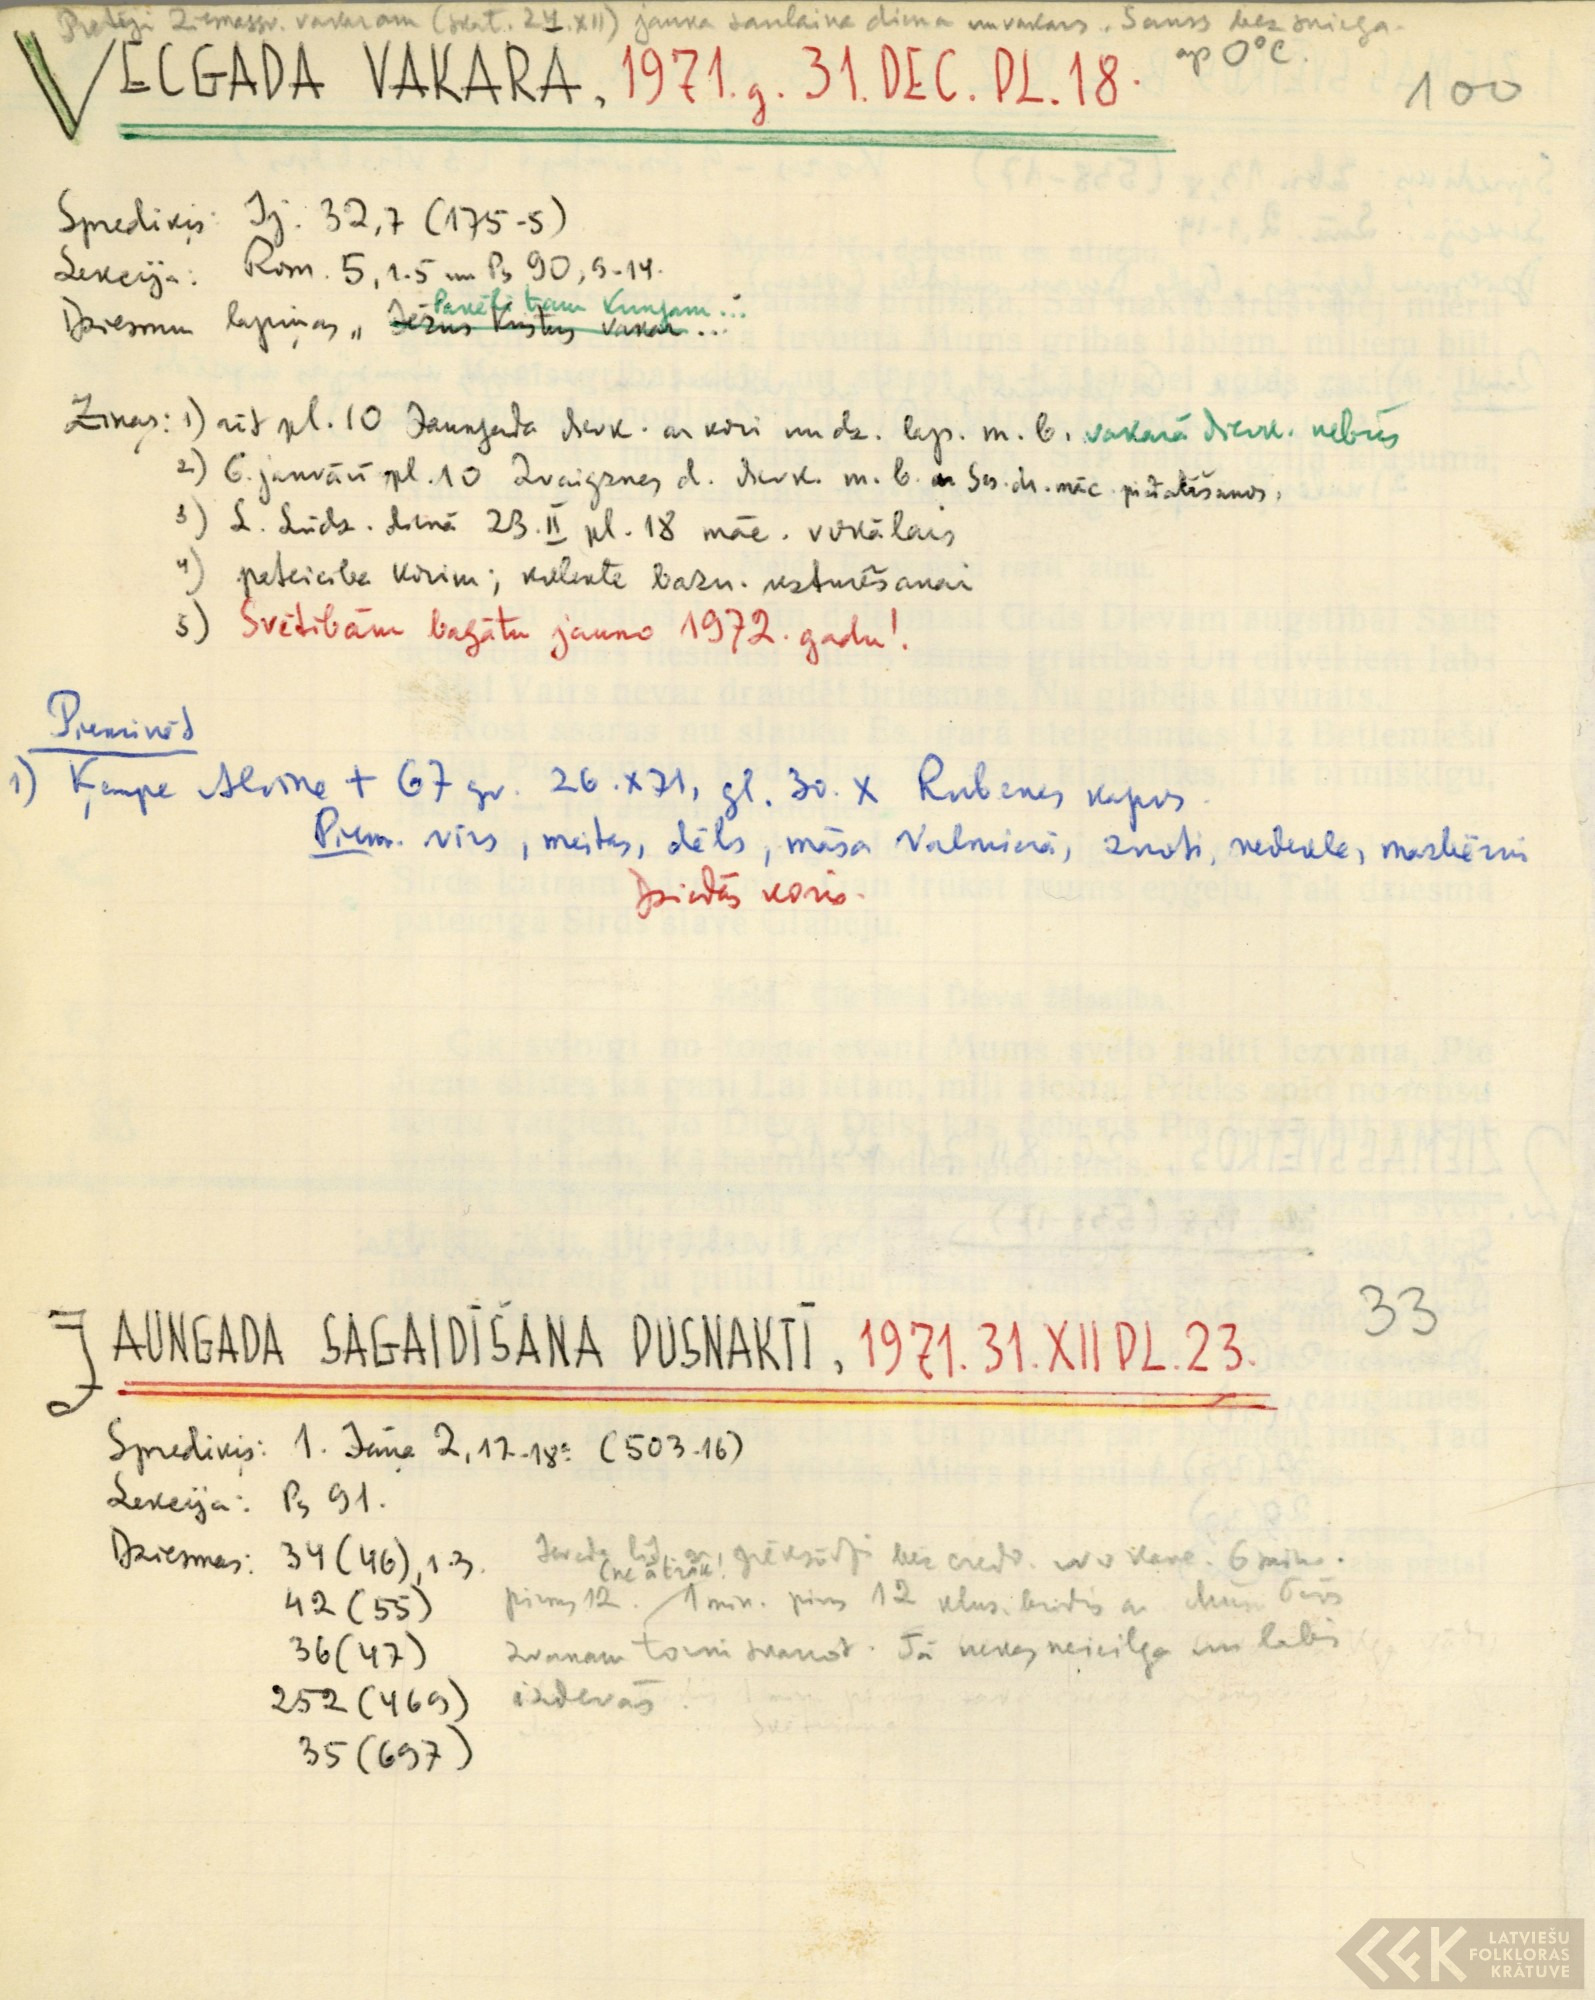 Pretēji Ziemassv. vakaram (skat. 24.XII) jauka saulaina diena un vakars. Sauss bez sniega.
ap 0°C.
VECGADA VAKARĀ, 1971.g. 31.DEC. PL.18.
100
Sprediķis: Ij. 32,7 (175-5)
Lekcija: Rom. 5, 1-5 un Ps 90, 9-14.
Pavēli tam Kungam...
Dziesmu lapiņas „Jēzus Kristus vakar...
Ziņas: 1) rīt pl. 10 Jaungada dievk. ar kori un dz. lap. m. b. vakarā dievk. nebūs
2) 6. janvārī pl. 10 Zvaigznes d. dievk. m. b. ar Ses. dr. māc. piedalīšanos.
3) L. Lūdz. dienā 23.II pl. 18 māc. vokālais
4) pateicība korim; kolekte bazn. uzturēšanai
5) Svētībām bagātu jauno 1972. gadu!
Pieminēt
1) Ķempe Alvine + 67 gv. 26.X71, gl. 30.X Rubenes kapos.
Piem. vīrs, meitas, dēls, māsa Valmierā, znoti, vedekla, mazbērni
Dziedās koris.
JAUNGADA SAGAIDĪŠANA PUSNAKTĪ, 1971.31.XII PL.23.
33
Sprediķis: 1. Jāņa 2, 17-18a (503-16)
Lekcija: Ps 91.
Dziesmas: 34 (46), 1-3.
42 (55)
36 (47)
252 (469)
35 (697)
Ievada līt. ar grēksūdzi bez credo. no kanc. 6 min.
(ne ātrāk!
pirms 12. 1 min. pirms 12 klus. brīdis ar
zvanam tornī skanot. Tā nekas neieilga un labi
izdevās.
LATVIEŠU
FOLKLORAS
KRĀTUVE